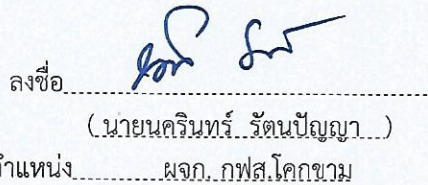 ลงชื่อ
( นายนครินทร์ รัตนปัญญา )
ตำแหน่ง ผจก. กฟส.โคกขาม